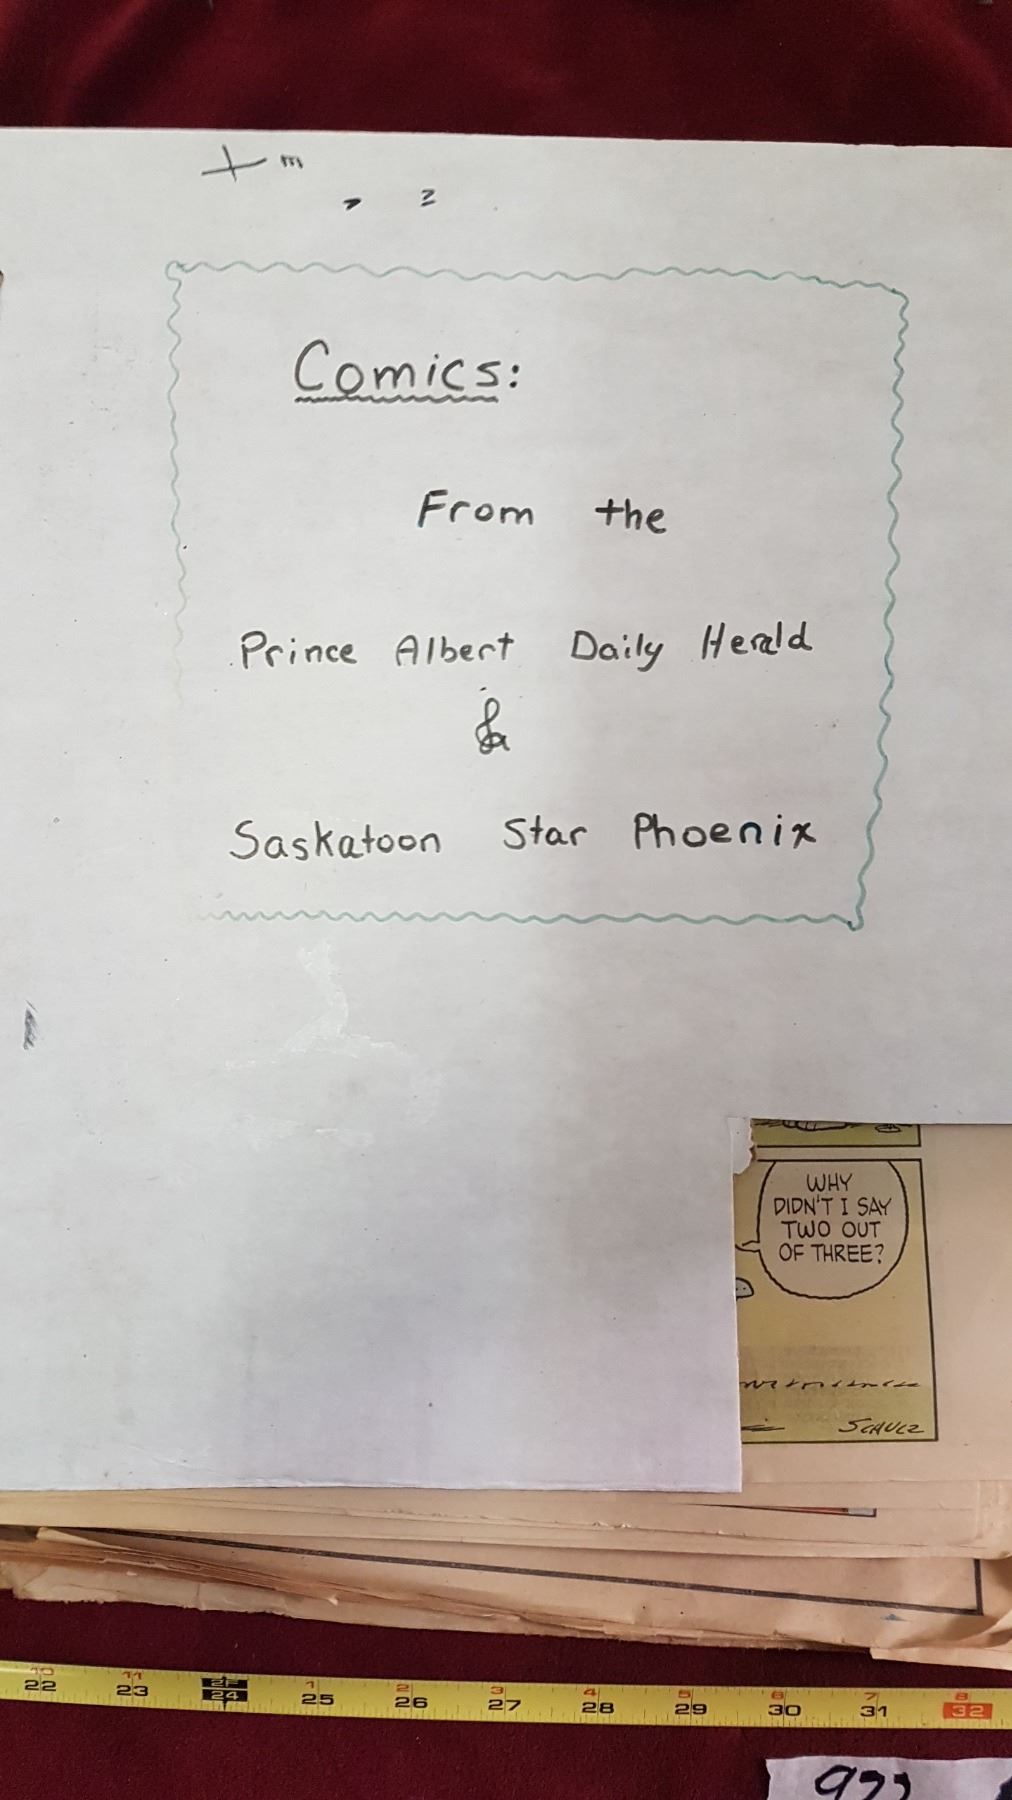 Comics:
From the
Prince Albert Daily Herald
&
Saskatoon Star Phoenix
WHY
DIDN'T I SAY
TWO OUT
OF THREE?
SCHULZ
10 11 2F 1 2 3 4 5 6 7 8
22 23 24 25 26 27 28 29 30 31 32